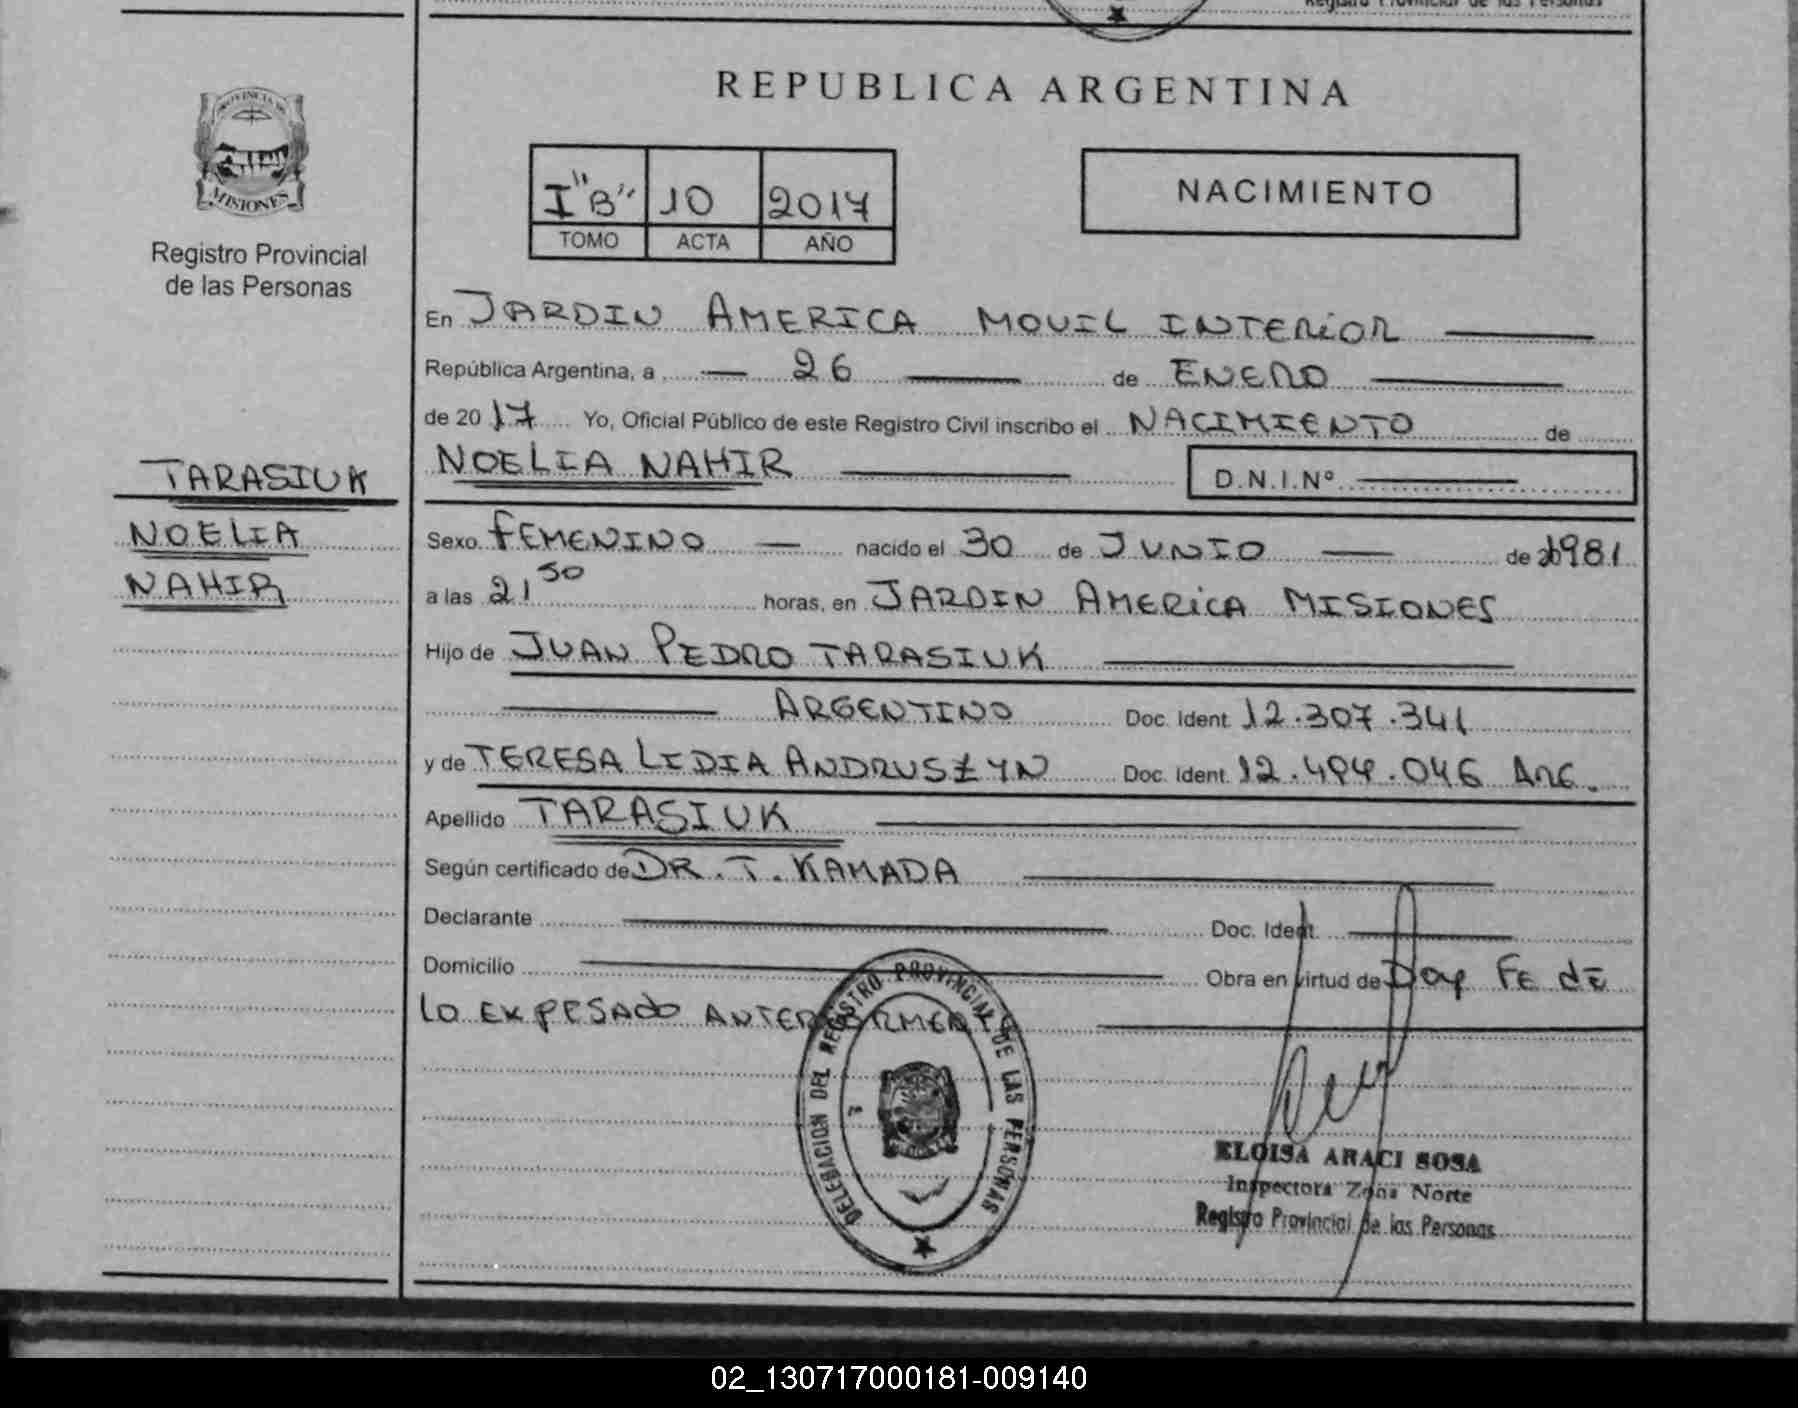 Registro Provincial de las Personas
PROVINCIA DE
MISIONES
Registro Provincial
de las Personas
TARASIUK
NOELIA
NAHIR
REPUBLICA ARGENTINA
I "B" 10 2017
TOMO ACTA AÑO
NACIMIENTO
En JARDIN AMERICA MOVIL INTERIOR
República Argentina, a 26 de ENERO
de 2017 Yo, Oficial Público de este Registro Civil inscribo el NACIMIENTO de
NOELIA NAHIR D.N.I.Nº
Sexo FEMENINO nacido el 30 de JUNIO de 1981
a las 21 50 horas, en JARDIN AMERICA MISIONES
Hijo de JUAN PEDRO TARASIUK
ARGENTINO Doc. Ident. 12.307.341
y de TERESA LIDIA ANDRUSZYN Doc. Ident. 12.494.046 ARG.
Apellido TARASIUK
Según certificado de DR. T. KAMADA
Declarante Doc. Ident.
Domicilio Obra en virtud de Doy FE dE
lo EXPESADO ANTERIORMENTE
DELEGACION DEL REGISTRO PROVINCIAL DE LAS PERSONAS
ELOISA ARACI SOSA
Inspectora Zona Norte
Registro Provincial de las Personas
02_130717000181-009140